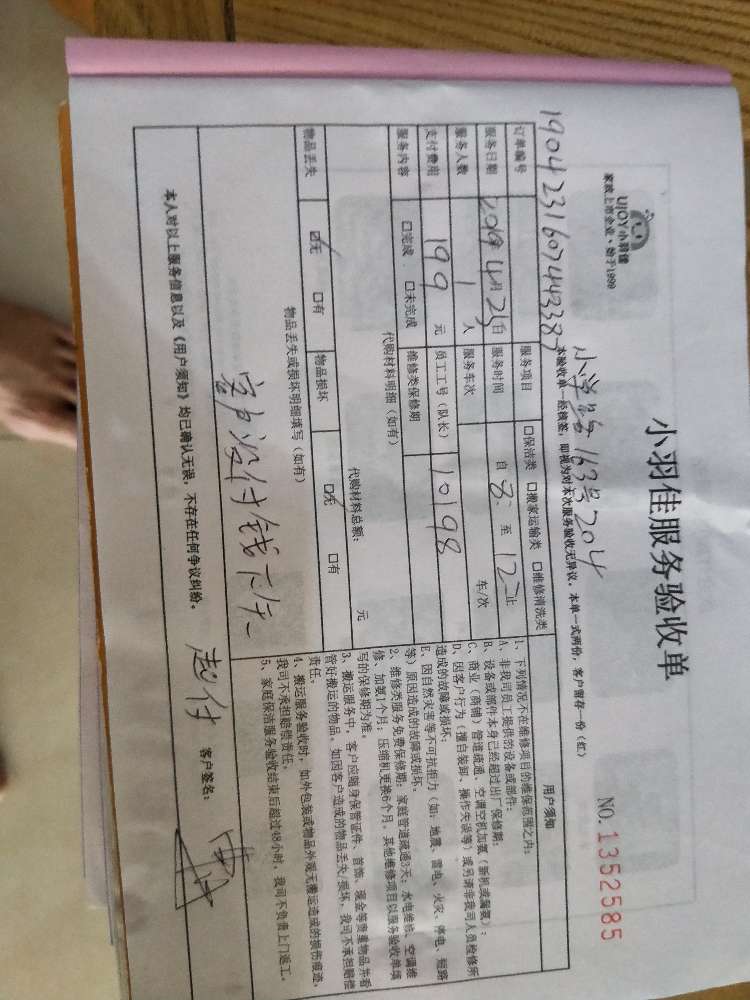 小羽佳服务验收单
UJOY小羽佳
家政上市企业·始于1999
NO.1352585
小学路163号204
本验收单一经核签，即视为对本次服务验收无异议。本单一式两份，客户留存一份（红）
订单编号
190423160744338
服务项目 口保洁类 口搬家运输类 口维修清洗类
服务日期 2019年4月25日 服务时间 自 8: 至 12 止
服务人数 1 人 服务车次 车/次
支付费用 199 元 员工工号（队长） 10198
服务内容 口完成 口未完成 维修类保修期
代购材料明细（如有）
代购材料总额： 元
物品丢失 口无 口有 物品损坏 口无 口有
物品丢失或损坏明细填写（如有）
客户没付钱
本人对以上服务信息以及《用户须知》均已确认无误，不存在任何争议纠纷。
客户签名：
用户须知
1、下列情况不在维修项目的维保范围之内：
A、非我司员工提供的设备或部件；
B、设备或部件本身已经超过出厂保修期；
C、商业（商铺）管道疏通、空调空机加氨（新机或漏氨）；
D、因客户行为（擅自装卸、操作失误等）或另请非我司人员检修所
造成的故障或损坏；
E、因自然灾害等不可抗拒力（如：地震、雷电、火灾、停电、短路
等）原因造成的故障或损坏。
2、维修类服务免费保修期：家庭管道疏通3天；水电维修、空调维
修、加氨1个月；压缩机更换6个月，其他维修项目以服务验收单填
写的保修期为准。
3、搬运服务中，客户应随身保管证件、首饰、现金等贵重物品并看
管好搬运的物品，如因客户造成的物品丢失/损坏，我司不承担赔偿
责任。
4、搬运服务验收时，如外包装或物品外观无搬运造成的损伤痕迹，
我司不承担赔偿责任。
5、家庭保洁服务验收结束后超过48小时，我司不负责上门返工。